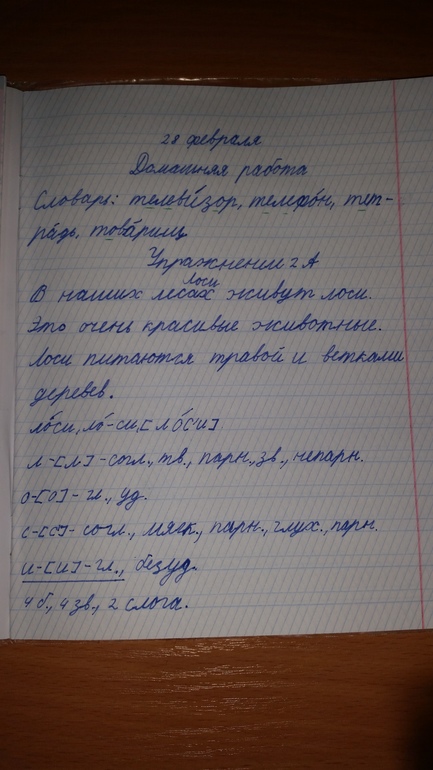 28 февраля
Домашняя работа
Словарь: телеви́зор, телефо́н, тет-
ра́дь, това́рищ
Упражнении 2 А
Лоси
В наших лесах живут лоси.
Это очень красивые животные.
Лоси питаются травой и ветками
деревев.
ло́си, ло́-си, [л о́с'и]
л-[л]-согл., тв., парн., зв., непарн.
о-[о]-гл., уд.
с-[с']-согл., мягк., парн., глух., парн.
и-[и]-гл., безуд.
4 б., 4 зв., 2 слога.